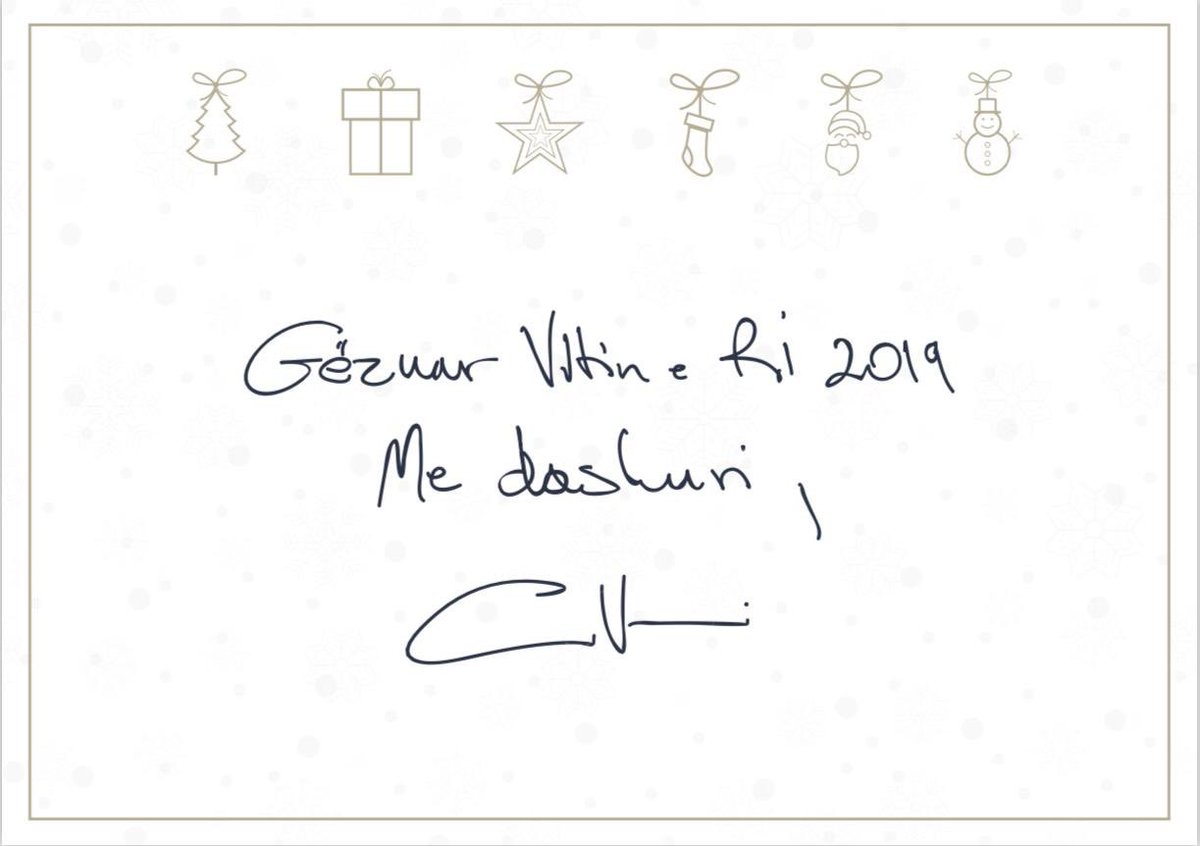 Gëzuar Vitin e Ri 2019
Me dashuri,